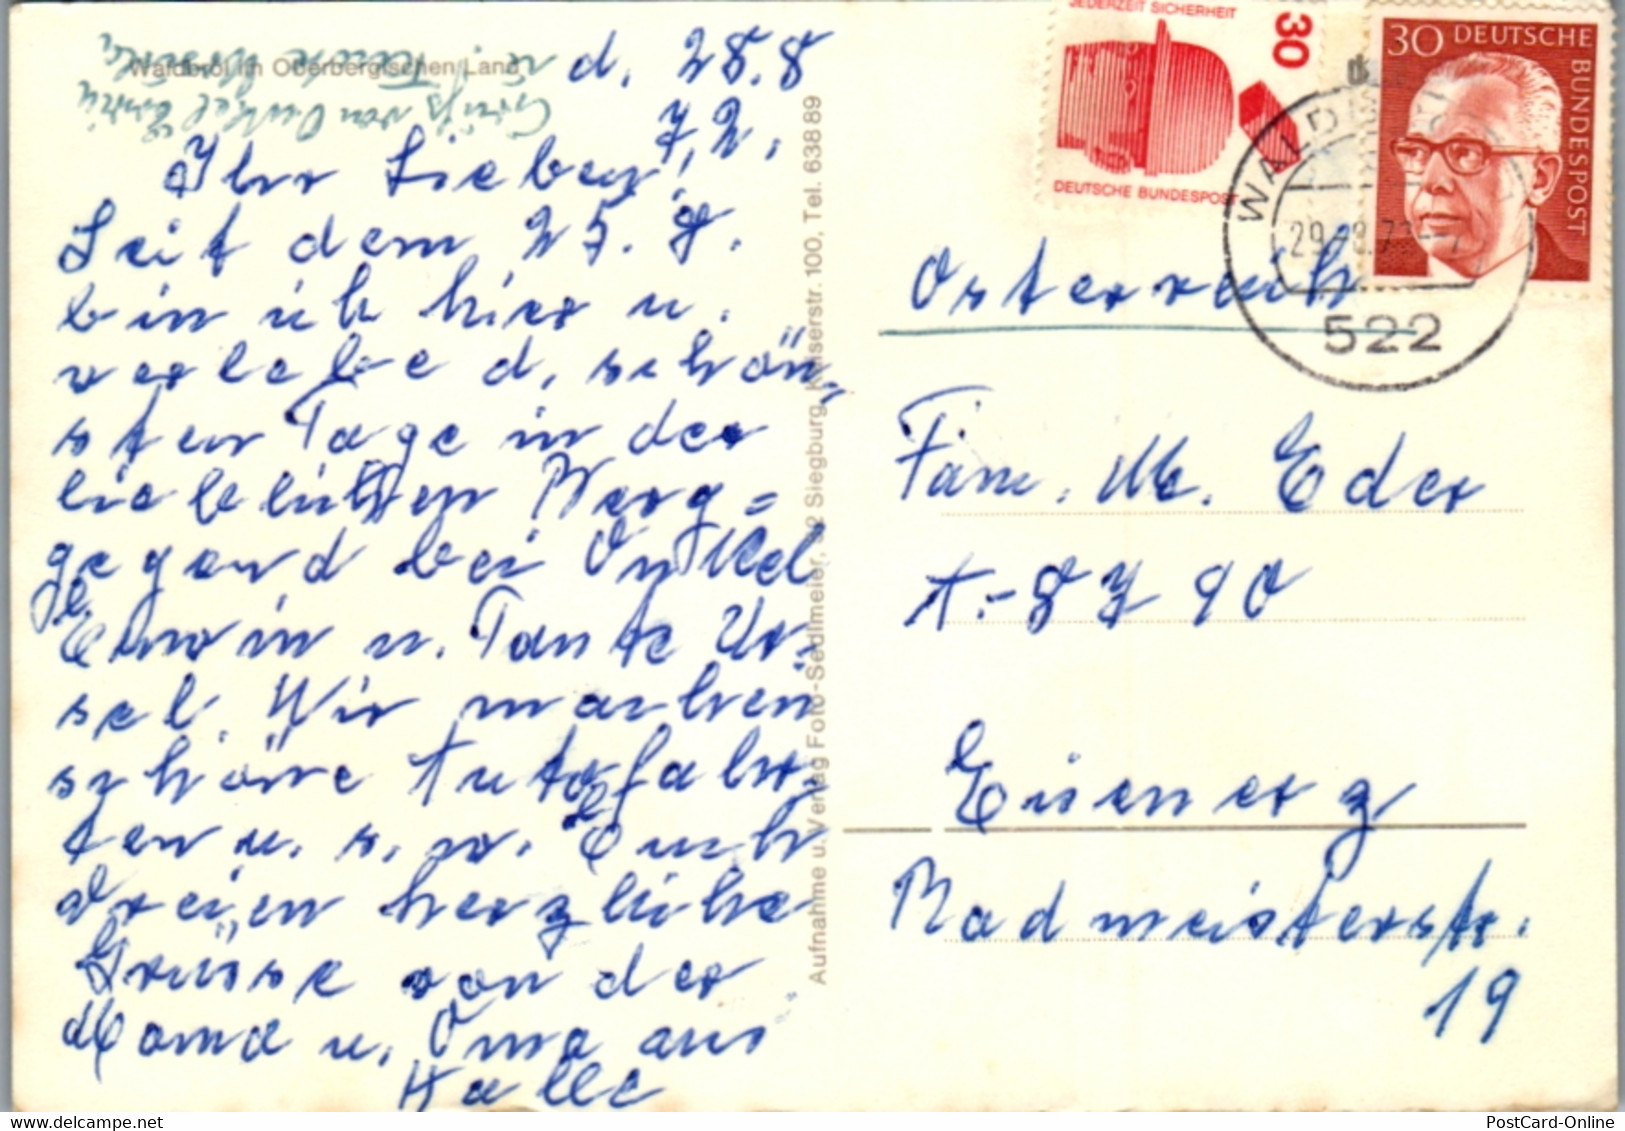 Waldbröl im Oberbergischen Land
Grüße von Onkel Erwin
u. Tante Ursel
d. 28.8
72.
Ihr Lieben!
Seit dem 25. 8.
bin ich hier u.
verlebe d. schön-
sten Tage in der
lieblichen Berg=
gegend bei Onkel
Erwin u. Tante Ur-
sel. Wir machen
schöne Autofahr-
ten u. s. w. Euch
dreien herzliche
Grüsse von der
Mama u. Oma aus
Halle
Aufnahme u. Verlag Foto-Sedlmeier, 52 Siegburg, Kaiserstr. 100, Tel. 638 89
JEDERZEIT SICHERHEIT
30
DEUTSCHE BUNDESPOST
30 DEUTSCHE
BUNDESPOST
WALDBRÖL
29.-8.72--7
522
Österreich
Fam. M. Eder
A.-8790
Eisenerz
Radmeisterstr.
19
PostCard-Online